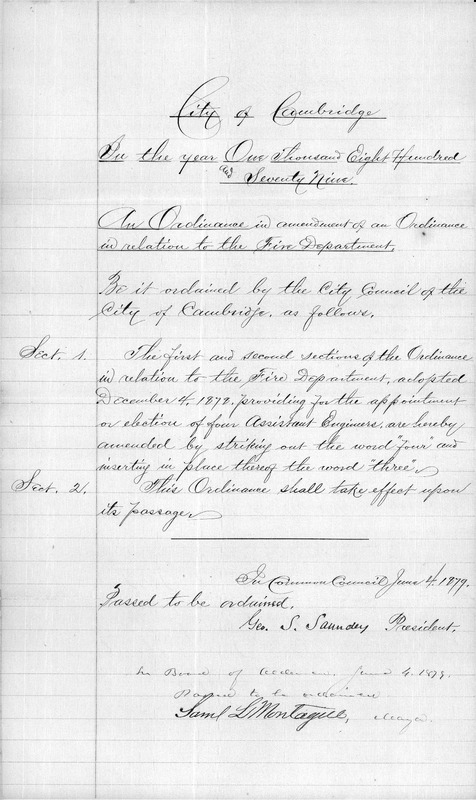 City of Cambridge
In the year One Thousand Eight Hundred
and Seventy Nine.
An Ordinance in amendment of an Ordinance
in relation to the Fire Department.
Be it ordained by the City Council of the
City of Cambridge, as follows.
Sect. 1. The first and second sections of the Ordinance
in relation to the Fire Department, adopted
December 4, 1872, providing for the appointment
or election of four Assistant Engineers, are hereby
amended by striking out the word "four" and
inserting in place thereof the word "three".
Sect. 2. This Ordinance shall take effect upon
its passage.
In Common Council June 4, 1879.
Passed to be ordained.
Geo. S. Saunders President.
In Board of Aldermen, June 4. 1879.
Passed to be ordained
Saml L Montague, Mayor.